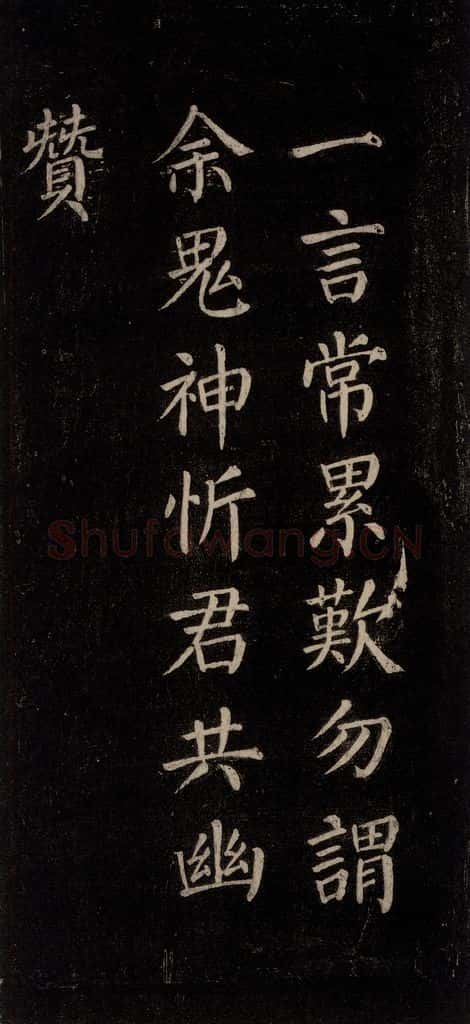 一言常累歎勿謂
余鬼神忻君共幽
贊
Shufawang.CN